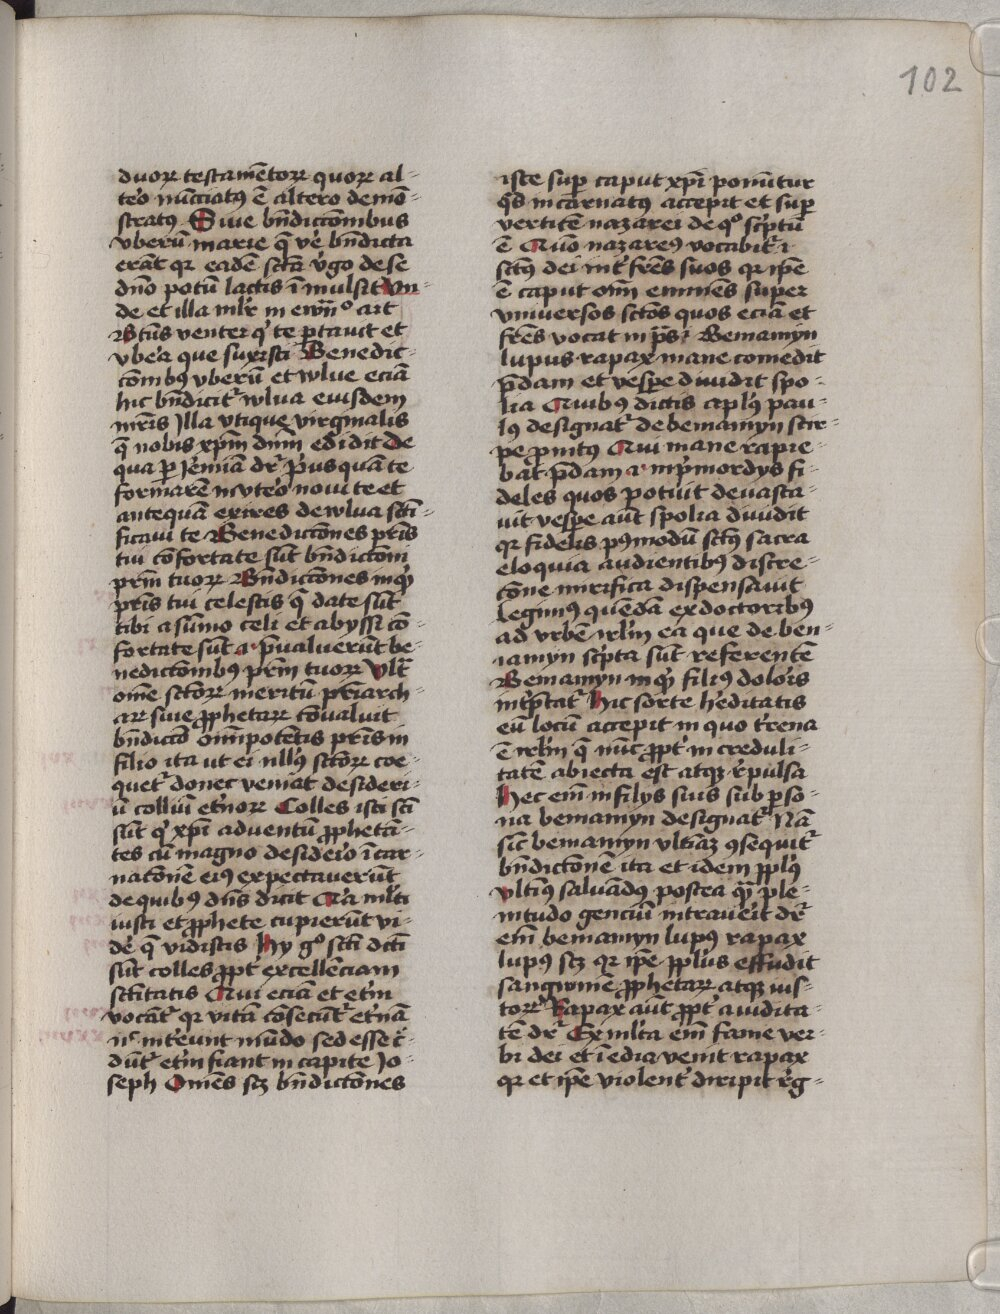 102
duoꝝ testamẽtoꝝ quoꝝ al-
te͛o nũciatꝰ ẽ altero demõ-
stratꝰ Siue bñdictõnibus
vberũ marie q̃ ve͛ bñdicta
erãt qꝛ eadẽ sctã v͛go de se
dño potũ lactis ĩmulsit Vn-
de et illa mlr͛ in ewñᵒ ait
Btũs venter qͥ te ꝑtauit et
vbe͛a que suxisti Benedic-
tõnibꝰ vberũ et wlue eciã
hic bñdicitᷣ wlua eiusdem
mr̃is Illa vtique virginalis
q̃ nobis xp̃m dñm edidit de
qua ꝑ Jeremiã dr̃ pͥusquã te
formarẽ in vte͛o noui te et
antequã exires de wlua scti-
ficaui te Benedictõnes pr̃is
tui cõfortate sũt bñdictõni
pr̃m tuoꝝ Bñdictõnes inqͣ
pr̃is tui celestis q̃ date sũt
tibi a sũmo celi et abyssi cõ-
fortate sũt ⁊ p̃ualuerũt be-
nedictõnibꝰ pr̃m tuoꝝ Vlt͛
om̃e sctõꝝ meritũ pr̃iarch-
aꝝ siue ꝓphetaꝝ cõualuit
bñdictõ om̃ipotẽtis pr̃is in
filio ita ut ei nllꝰ sctõꝝ coe-
quetᷣ donec veniat desideri-
ũ colliũ et͛noꝝ Colles isti sctĩ
sũt qͥ xp̃i aduentũ ꝓphetã-
tes cũ magno desiderio ĩcar-
natõnẽ eiꝰ expectauerũt
de quibꝰ dñs dicit Qͥa mlti
iusti et ꝓphete cupierũt vi-
de͛ q̃ vidistis Hy gͦ sctĩ dctĩ
sũt colles ꝓpt͛ excellẽciam
sctĩtatis Qui eciã et et͛ni
vocãtᷣ qꝛ vitã cõsecũtᷣ et͛nã
nͨ int͛eunt mũdo sed esse c͛-
dũtᷣ et͛ni fiant in capite Jo-
seph Omẽs scꝫ bñdictõnes
iste suꝑ caput xp̃i ponũtur
qͥd incarnatꝰ accepit et suꝑ
verticẽ nazarei de qͦ scͥptũ
ẽ Qm̃ nazareꝰ vocabitᷣ ⁊
sctũs dei int͛ fr̃es suos qꝛ ip̃e
ẽ caput om̃i eminẽs super
vniuersos sctõs quos eciã et
fr̃es vocat in p̃s⁊ Beniamyn
lupus rapax mane comedit
p̃dam et vespe͛ diuidit spo-
lia Quibꝰ dictis aplꝰs pau-
lꝰ designatᷣ de beniamyn stir-
pe ꝓnitꝰ Qui mane rapie-
bat p̃dam ⁊ inpͥmordys fi-
deles quos potuit deuasta-
uit vespe͛ aũt spolia diuidit
qꝛ fidelis pꝰmodũ sctũs sacra
eloquia audientibꝰ discre-
tõne mirifica dispensauit
legimꝰ quẽdã ex doctoribꝰ
ad vrbẽ irlm̃ ea que de ben-
iamyn scͥpta sũt referentẽ
Beniamyn inqͣ filiꝰ doloris
int͛p̃tatᷣ Hic sorte he͛ditatis
eũ locũ accepit in quo t͛rena
ẽ irlm̃ q̃ nũc ꝓpt͛ increduli-
tatẽ abiecta est atqꝫ r͛pulsa
Hec em̃ in filys suis sub ꝑso-
na beniamyn designatᷣ Nã
sic̃ beniamyn vltĩaꝫ ꝯsequitᷣ
bñdictõnẽ ita et idem ppl̃s
vltĩꝰ saluãdꝰ postea qͣm ple-
nitudo genciũ intraue͛it dr̃
em̃ beniamyn lupꝰ rapax
lupꝰ scꝫ qꝛ ip̃e ppl̃s effudit
sangwinẽ ꝓphetaꝝ atqꝫ ius-
toꝝ Rapax aũt ꝓpt͛ auidita-
tẽ dr̃ Ex ml̃ta em̃ fame ver-
bi dei et ĩedia venit rapax
qꝛ et ip̃e violent͛ diripit r͛g-